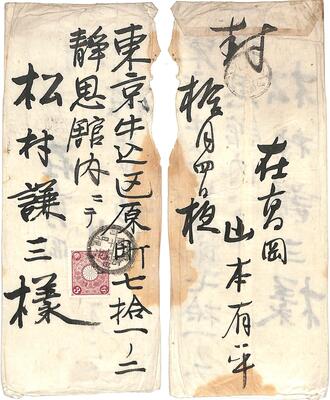 東京牛込区原町七拾一ノ二
静思館内ニテ
松村謙三様
封
拾月四日夜
在高岡
山本有平